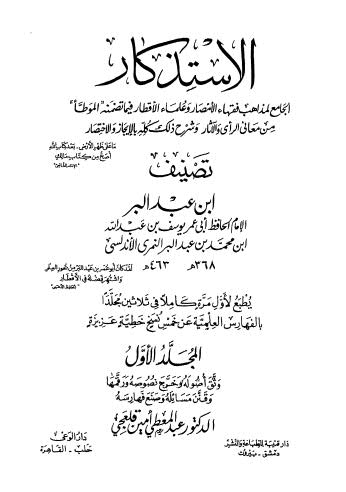 الاستذكار
الجامع لمذاهب فقهاء الأمصار وعلماء الأقطار فيما تضمنه "الموطأ"
من معاني الرأي والآثار وشرح ذلك كله بالإيجاز والاختصار
ما على ظهر الأرض - بعد كتاب الله
أصح من كتاب مالك
تصنيف
ابن عبد البر
الإمام الحافظ أبي عمر يوسف بن عبد الله
ابن محمد بن عبد البر النمري الأندلسي
٣٦٨هـ ٤٦٣هـ
يطبع لأول مرة كاملا في ثلاثين مجلدا
بالفهارس العلمية عن خمس نسخ خطية عزيزة
المجلد الأول
وثق أصوله وخرج نصوصه ورقمها
وقنن مسائله وصنع فهارسه
الدكتور عبد المعطي أمين قلعجي
دار قتيبة للطباعة والنشر
دمشق - بيروت
دار الوعي
حلب - القاهرة